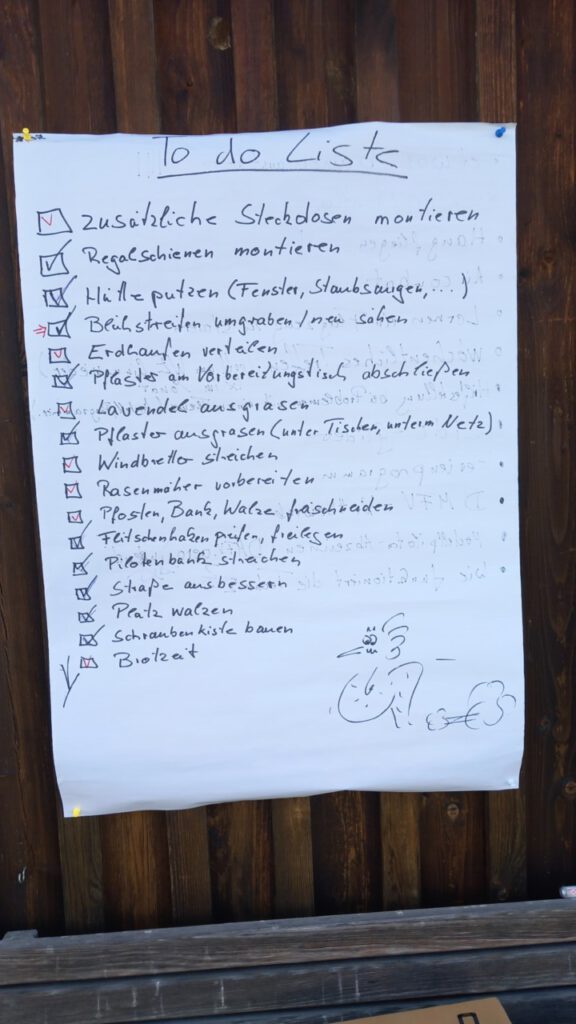 To do Liste
Zusätzliche Steckdosen montieren
Regalschienen montieren
Hütte putzen (Fenster, Staubsauger, ...)
Blühstreifen umgraben / neu sähen
Erdhaufen verteilen
Pflaster am Vorbereitungstisch abschließen
Lavendel ausgrasen
Pflaster ausgrasen (unter Tischen, unterm Netz)
Windbretter streichen
Rasenmäher vorbereiten
Pfosten, Bank, Walze freischneiden
Flitschenhaken prüfen, freilegen
Pilotenbank streichen
Straße ausbessern
Platz walzen
Schraubenkiste bauen
Brotzeit